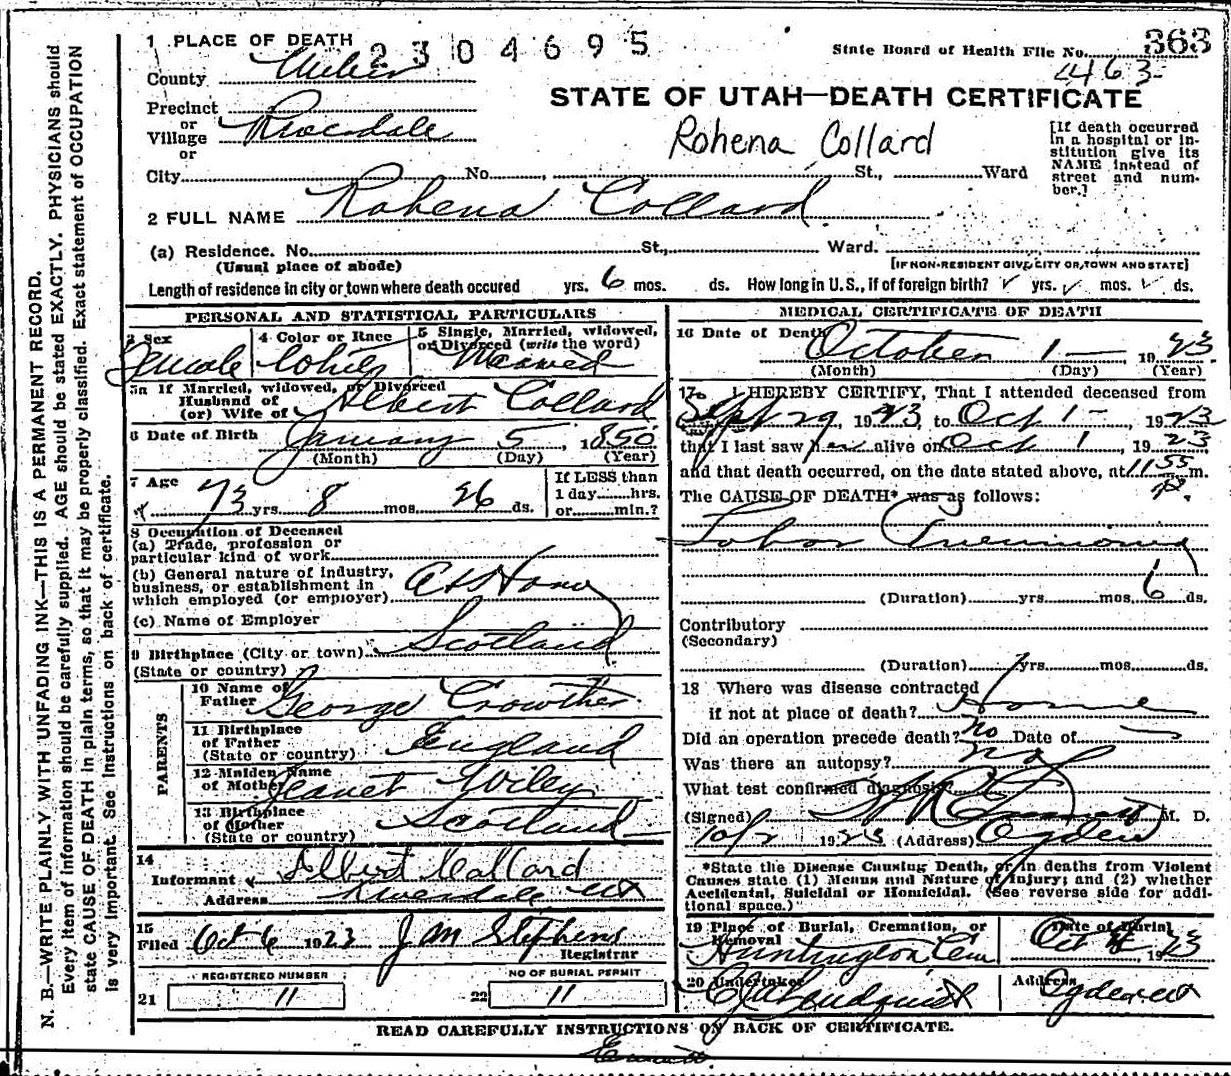 1 PLACE OF DEATH 2304695
State Board of Health File No. 363
463
County Weber
STATE OF UTAH—DEATH CERTIFICATE
Precinct
or
Village Riverdale
or
Rohena Collard
[If death occurred in a hospital or institution give its NAME instead of street and number.]
City No. , St., Ward
2 FULL NAME Rohena Collard
(a) Residence. No. St., Ward.
(Usual place of abode) [IF NON-RESIDENT GIVE CITY OR TOWN AND STATE]
Length of residence in city or town where death occured yrs. 6 mos. ds. How long in U.S., if of foreign birth? ✓ yrs. ✓ mos. ✓ ds.
PERSONAL AND STATISTICAL PARTICULARS
3 Sex Female
4 Color or Race White
5 Single, Married, widowed, or Divorced (write the word) Married
5a If Married, widowed, or Divorced
Husband of
(or) Wife of Albert Collard
6 Date of Birth January 5, 1850
(Month) (Day) (Year)
7 Age 73 yrs. 8 mos. 26 ds.
If LESS than
1 day hrs.
or min.?
8 Occupation of Deceased
(a) Trade, profession or
particular kind of work
(b) General nature of industry,
business, or establishment in
which employed (or employer) At Home
(c) Name of Employer
9 Birthplace (City or town) Scotland
(State or country)
PARENTS
10 Name of Father George Crowther
11 Birthplace of Father England
(State or country)
12 Maiden Name of Mother Jeanet Wiley
13 Birthplace of Mother Scotland
(State or country)
14
Informant Albert Collard
Address Riverdale Ut
15
Filed Oct 6 1923 J M Stephens
Registrar
REGISTERED NUMBER
21 11
NO OF BURIAL PERMIT
22 11
MEDICAL CERTIFICATE OF DEATH
16 Date of Death October 1— 1923
(Month) (Day) (Year)
17 I HEREBY CERTIFY, That I attended deceased from
Sept 29, 1923, to Oct 1-, 1923
that I last saw her alive on Oct 1, 1923,
and that death occurred, on the date stated above, at 11 55 P. m.
The CAUSE OF DEATH* was as follows:
Lobar Pneumonia
(Duration) yrs. mos. 6 ds.
Contributory
(Secondary)
(Duration) yrs. mos. ds.
18 Where was disease contracted
if not at place of death? Home
Did an operation precede death? no Date of
Was there an autopsy? no
What test confirmed diagnosis?
(Signed) M. D.
10/2 1923 (Address) Ogden
*State the Disease Causing Death, or in deaths from Violent
Causes state (1) Means and Nature of Injury; and (2) whether
Accidental, Suicidal or Homicidal. (See reverse side for additional space.)
19 Place of Burial, Cremation, or Removal Huntington Cem
Date of Burial Oct 1923
20 Undertaker Lindquist
Address Ogden Ut
READ CAREFULLY INSTRUCTIONS ON BACK OF CERTIFICATE.
N. B.—WRITE PLAINLY WITH UNFADING INK—THIS IS A PERMANENT RECORD.
Every item of information should be carefully supplied. AGE should be stated EXACTLY. PHYSICIANS should
state CAUSE OF DEATH in plain terms, so that it may be properly classified. Exact statement of OCCUPATION
is very important. See instructions on back of certificate.